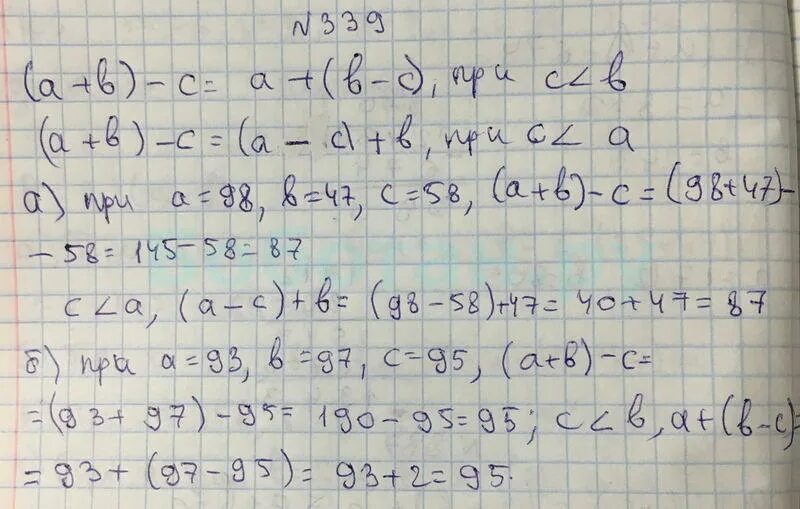 №339
(а+в)-с= а+(в-с), при с<в
(а+в)-с=(а-с)+в, при с< а
а) при а=98, в=47, с=58, (а+в)-с=(98+47)-
-58=145-58=87
с<а, (а-с)+в= (98-58)+47=40+47=87
б) при а=93, в=97, с=95, (а+в)-с=
=(93+97)-95= 190-95=95; с<в, а+(в-с)=
=93+(97-95)= 93+2=95.